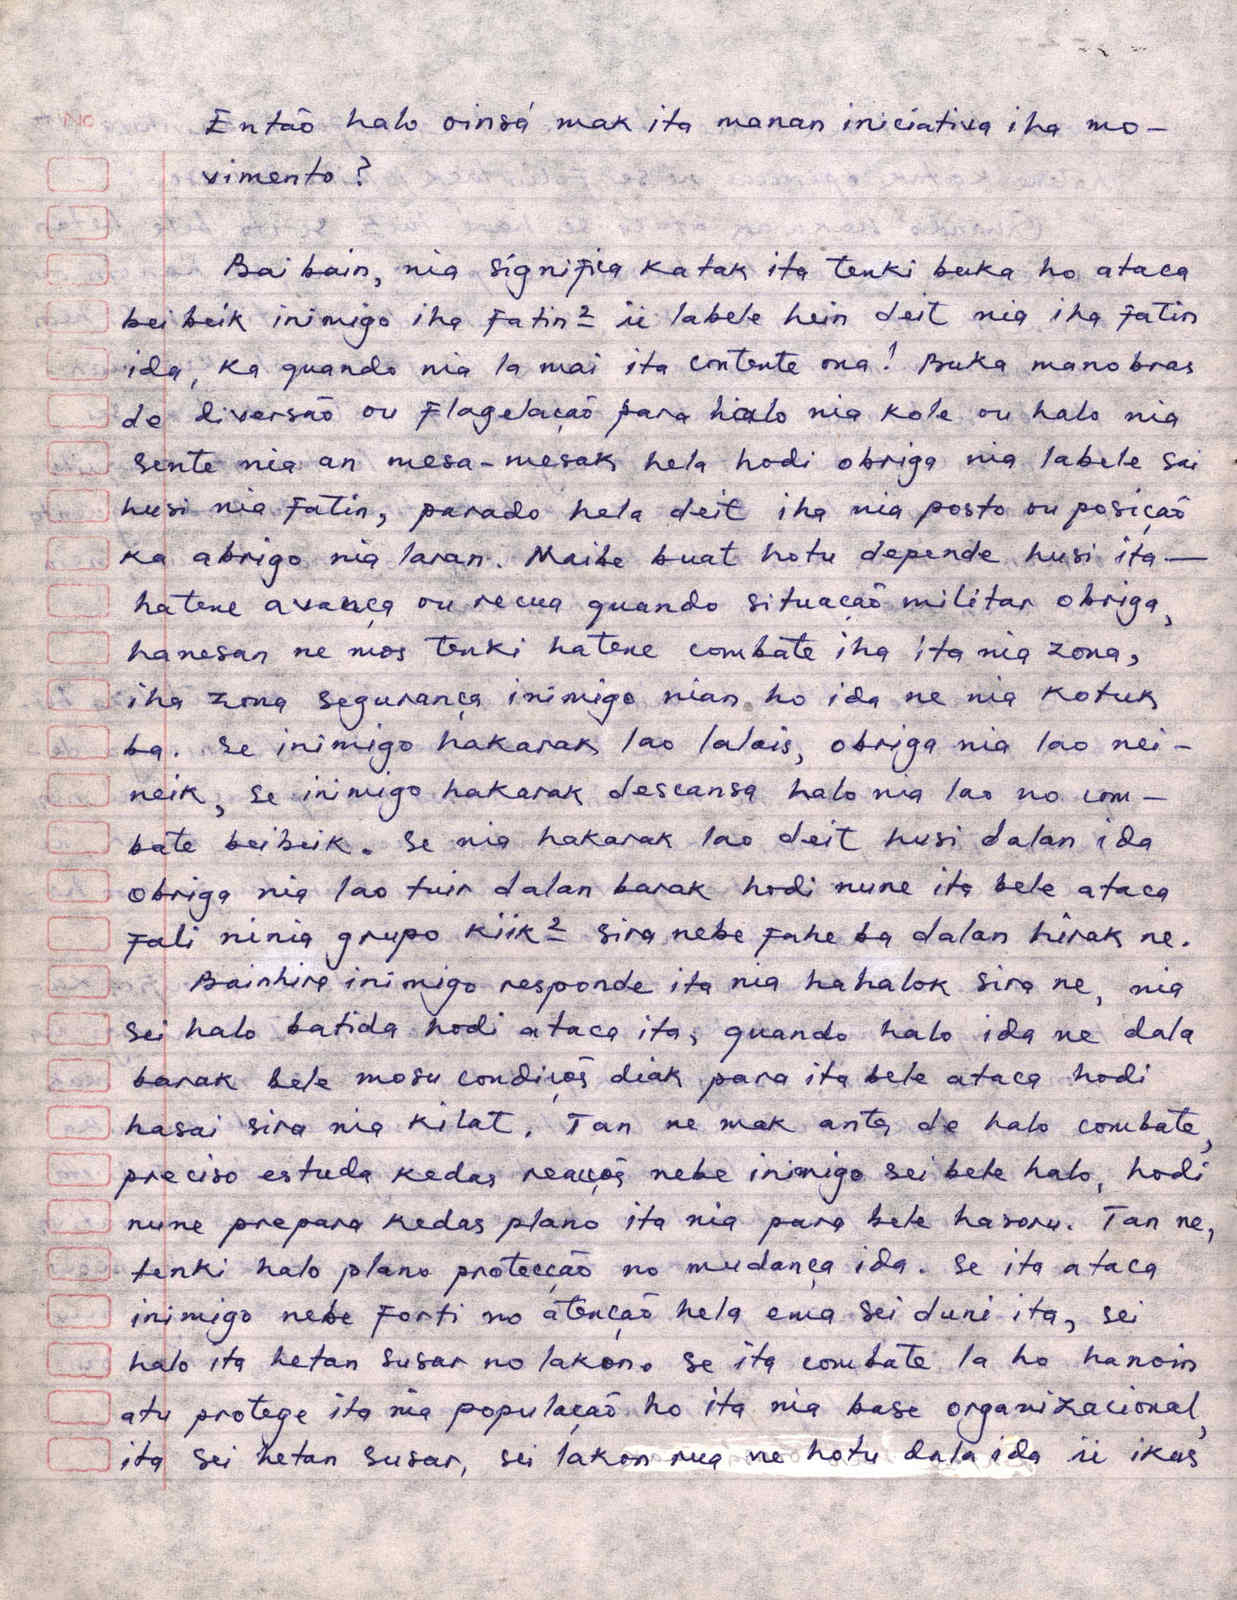 Então halo oinsá mak ita manan iniciativa iha mo-
vimento?
Baibain, nia significa katak ita tenki buka ho ataca
beibeik inimigo iha fatin 2 ii labele hein deit nia iha fatin
ida, ka quando nia la mai ita contente ona! Buka manobras
de diversão ou flagelação para halo nia kole ou halo nia
sente nia an mesa-mesak hela hodi obriga nia labele sai
husi nia fatin, parado hela deit iha nia posto ou posição
ka abrigo nia laran. Maibe buat hotu depende husi ita —
hatene avança ou recua quando situação militar obriga,
hanesan ne mos tenki hatene combate iha ita nia zona,
iha zona segurança inimigo nian ho ida ne nia kotuk
ba. Se inimigo hakarak lao lalais, obriga nia lao nei-
neik, se inimigo hakarak descansa halo nia lao no com-
bate beibeik. Se nia hakarak lao deit husi dalan ida
obriga nia lao tuir dalan barak hodi nune ita bele ataca
fali ninia grupo kiik 2 sira nebe fahe ba dalan hirak ne.
Bainhira inimigo responde ita nia hahalok sira ne, nia
sei halo batida hodi ataca ita, quando halo ida ne dala
barak bele mosu condições diak para ita bele ataca hodi
hasai sira nia kilat. Tan ne mak antes de halo combate,
preciso estuda kedas reacções nebe inimigo sei bele halo, hodi
nune prepara kedas plano ita nia para bele hasoru. Tan ne,
tenki halo plano protecção no mudança ida. Se ita ataca
inimigo nebe forti no atenção hela ema sei duni ita, sei
halo ita hetan susar no lakon. Se ita combate la ho hanoin
atu protege ita nia população ho ita nia base organizacional,
ita sei hetan susar, sei lakon rua ne hotu dala ida ii ikus